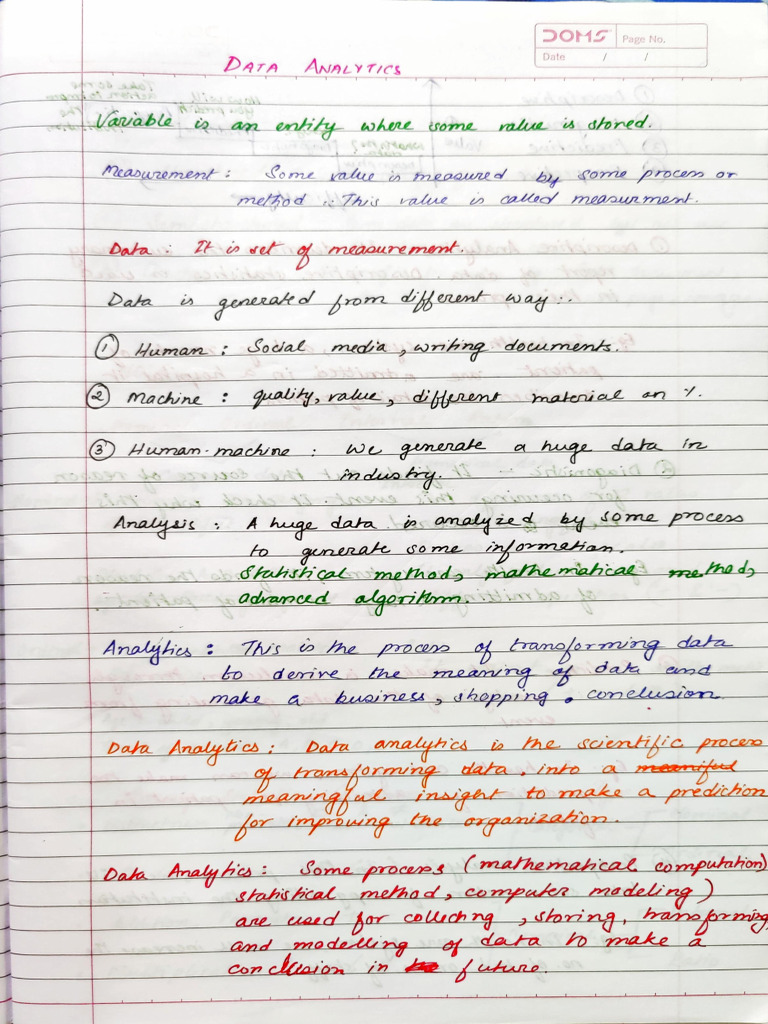 DOMS Page No.
Date / /
DATA ANALYTICS
Variable is an entity where some value is stored.
Measurement : Some value is measured by some process or
method ∴ This value is called measurment.
Data : It is set of measurement.
Data is generated from different way :.
① Human : Social media, writing documents.
② Machine : quality, value, different material on %.
③ Human-machine : we generate a huge data in
industry.
Analysis : A huge data is analyzed by some process
to generate some information.
Statistical methods, mathematical methods,
advanced algorithm.
Analytics : This is the process of transforming data
to derive the meaning of data and
make a business, shopping . conclusion
Data Analytics : Data analytics is the scientific process
of transforming data, into a
meaningful insight to make a prediction
for improving the organization.
Data Analytics : Some process (mathematical computation)
statistical method, computer modeling)
are used for collecting, storing, transforming,
and modelling of data to make a
conclusion in future.